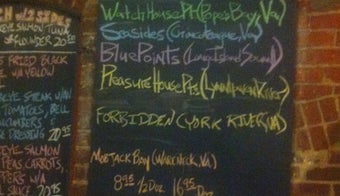 CH w/2 SIDES
EYE SALMON, TUNA
FLOUNDER 20.00
FRIED BLACK
w/ YELLOW
EYE STEAK w/
TOMATOES, BELL
CUMBERS, &
DRESSING 20.95
EYE SALMON
PEAS, CARROTS,
PERS w/ A
SAUCE 20.95
Watch House Pt. (Popes Bay, Va)
Seasides (Chincoteague, Va)
Blue Points (Long Island Sound)
Pleasure House Pts. (Lynnhaven River)
FORBIDDEN (YORK RIVER, VA)
MOBJACK BAY (WARE NECK, VA)
8.95 1/2 Doz. 16.95 Doz